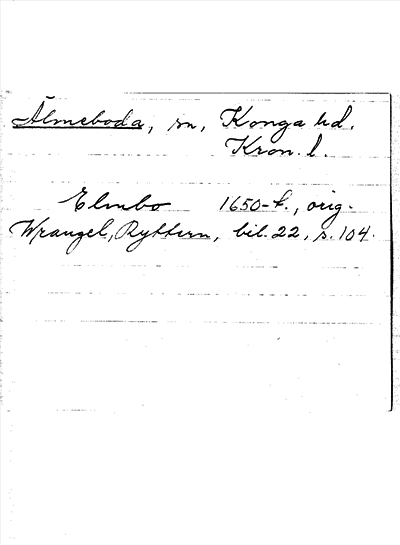 Älmeboda, sn, Konga hd.
Kron. l.
Elmbo 1650-t., orig.
Wrangel, Ryttern, bil. 22, s. 104.